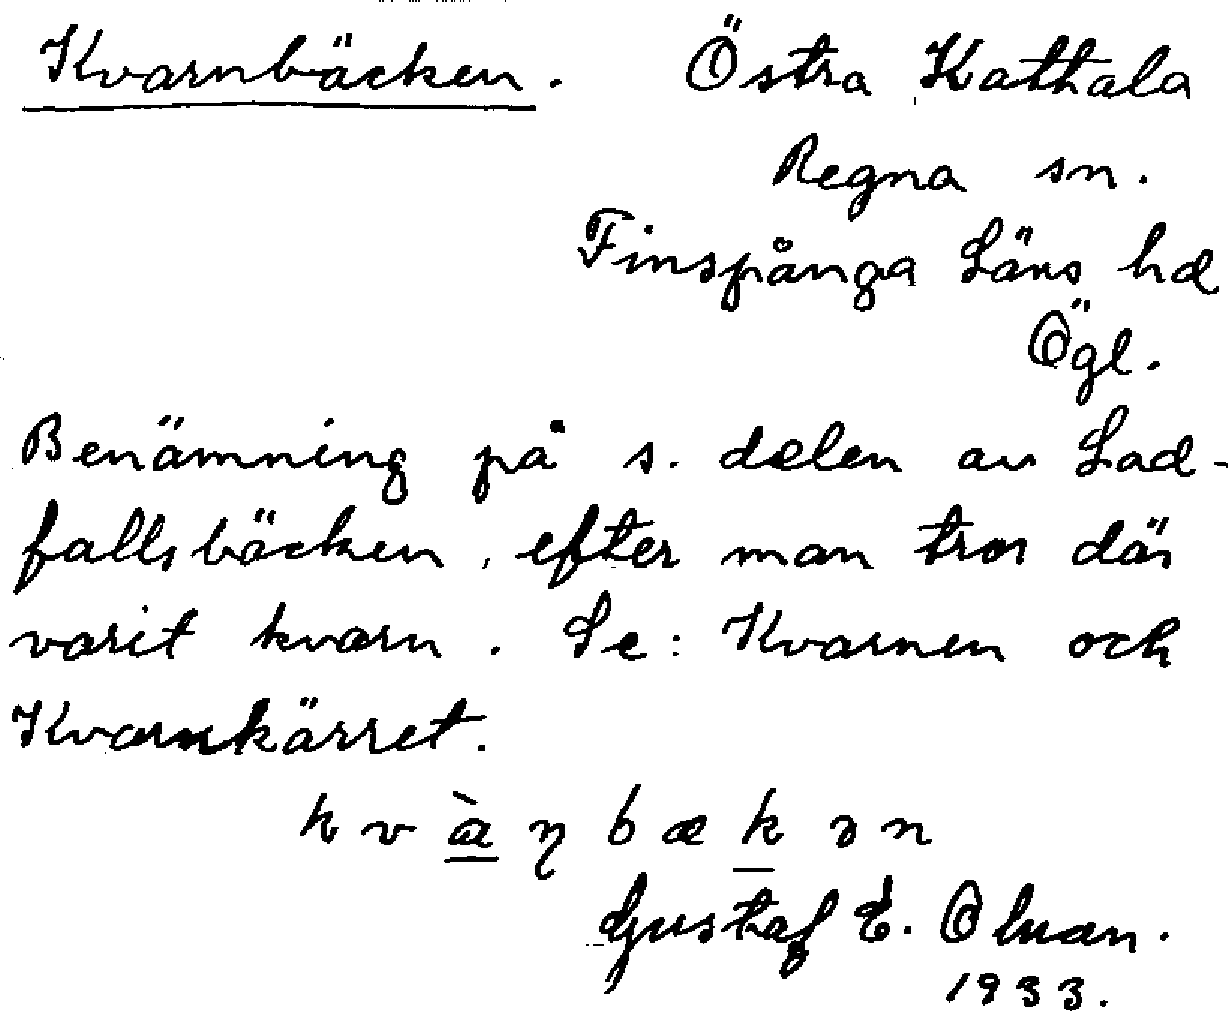 Kvarnbäcken. Östra Kattala
Regna sn.
Finspånga Läns hd
Ögl.
Benämning på s. delen av Lad-
fallsbäcken, efter man tror där
varit kvarn. Se: Kvarnen och
Kvarnkärret.
kvàŋbækən
Gustaf E.
1933.